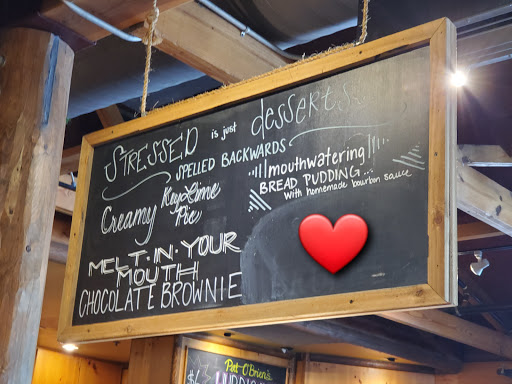 STRESSED is just desserts
SPELLED BACKWARDS
mouthwatering
BREAD PUDDING...
with homemade bourbon sauce
Creamy Key Lime
Pie
MELT-IN-YOUR
MOUTH
CHOCOLATE BROWNIE
Pat O'Brien's